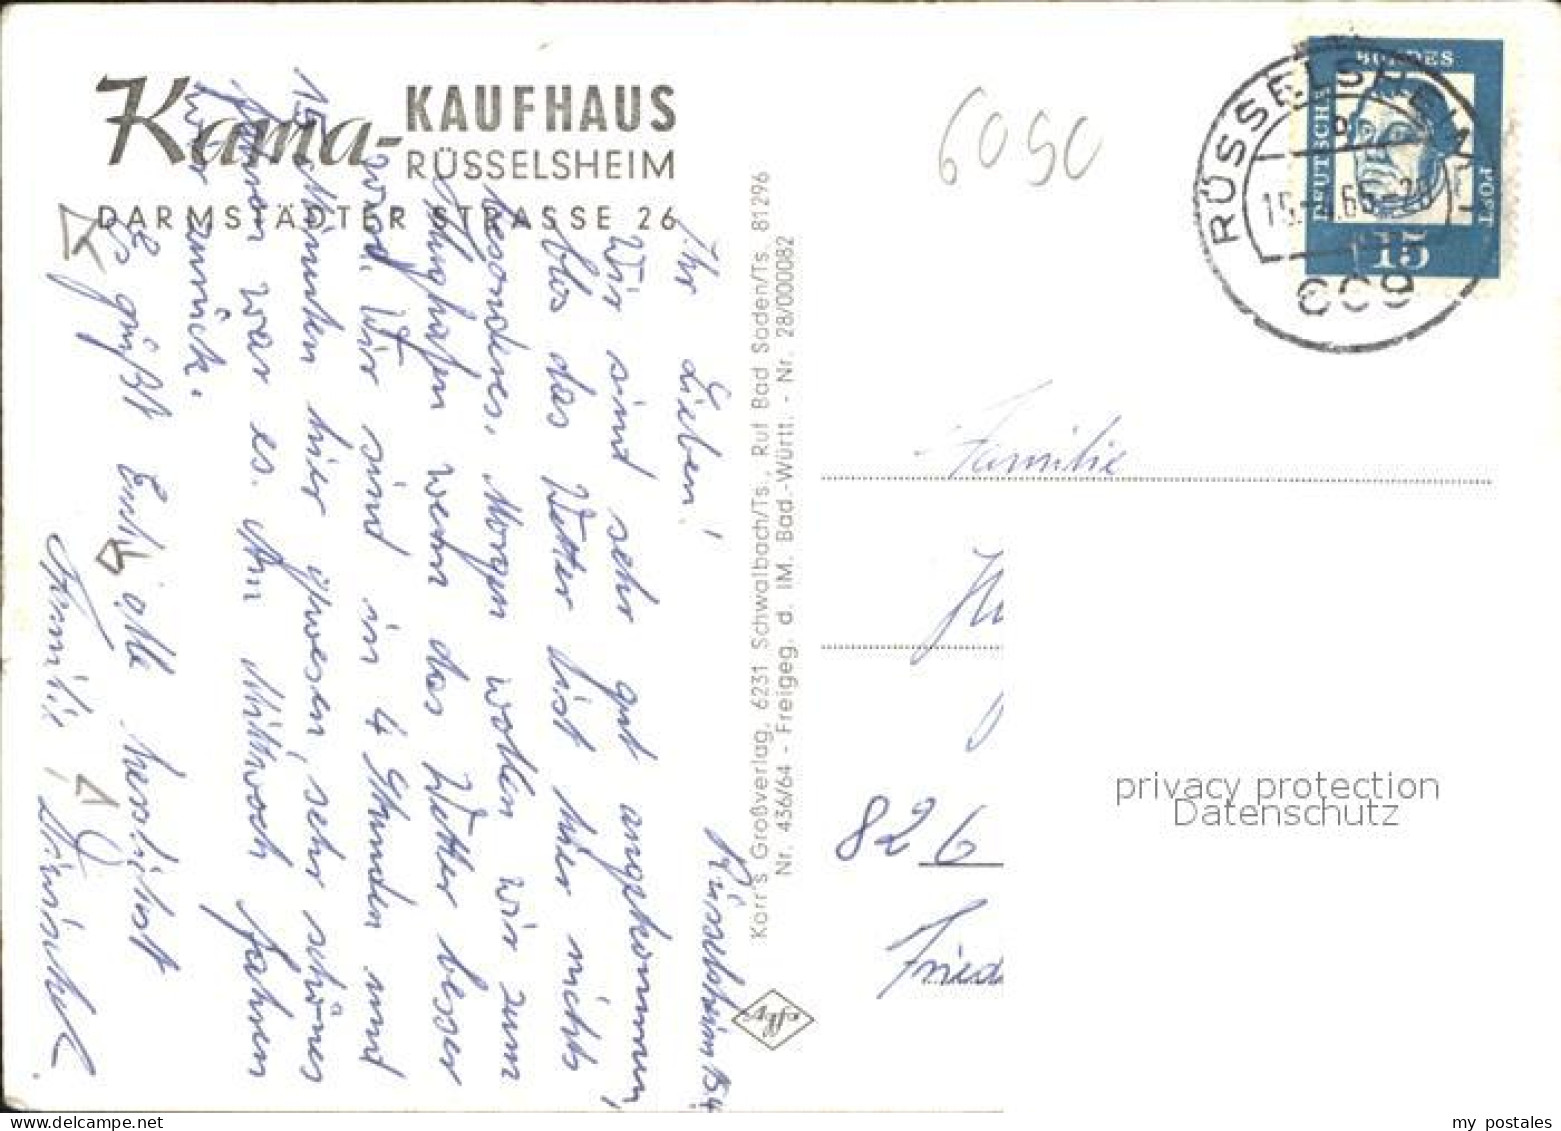 Kama-
KAUFHAUS
RÜSSELSHEIM
DARMSTÄDTER STRASSE 26
Rüsselsheim 15.4
Ihr Lieben!
Wir sind sehr gut angekommen,
blos das Wetter ist hier nichts
besonderes. Morgen wollen wir zum
Flughafen wenn das Wetter besser
wird. Wir sind in 4 Stunden und
15 Minuten hier gewesen, sehr schönes
fahren war es. Am Mittwoch fahren
wir zurück.
Es grüßt Euch alle herzlichst
Korr's Großverlag, 6231 Schwalbach/Ts., Ruf Bad Soden/Ts. 81296
Nr. 436/64 - Freigeg. d. IM. Bad.-Württ. - Nr. 28/000082
6050
RÜSSELSHEIM
DEUTSCHE
BUNDES
POST
15
Familie
826
Fried
privacy protection
Datenschutz
my postales